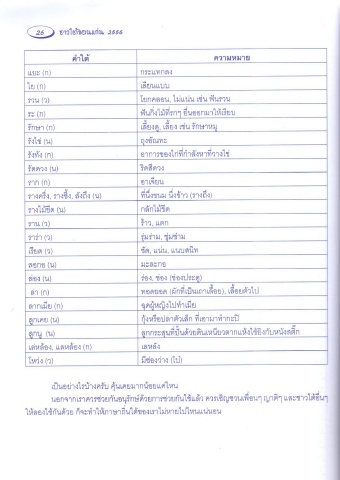 26 ชาวใต้มอขอนแก่น 2556
คำใต้ ความหมาย
แยะ (ก) กระแทกลง
โย (ก) เลียนแบบ
รวน (ว) โยกคลอน, ไม่แน่น เช่น ฟันรวน
ระ (ก) ฟันกิ่งไม้ที่รกๆ ยื่นออกมาให้เรียบ
รักษา (ก) เลี้ยงดู, เลี้ยง เช่น รักษาหมู
รังไข่ (น) ถุงอัณฑะ
รังทัง (ก) อาการของไก่ที่กำลังหาที่วางไข่
รัดดวง (น) ริดสีดวง
ราก (ก) อาเจียน
รางครึ่ง, รางซึ้ง, ลังถึง (น) ที่นึ่งขนม นึ่งข้าว (รางถึง)
รางไม้ขีด (น) กลักไม้ขีด
ราน (ว) ร้าว, แตก
ราร่า (ว) รุ่มร่าม, ซุ่มซ่าม
เรียด (ว) ชิด, แน่น, แนบสนิท
ลอกอ (น) มะละกอ
ล่อง (น) ร่อง, ช่อง (ช่องประตู)
ลา (ก) ทอดยอด (ผักที่เป็นเถาเลื้อย), เลื้อยตัวไป
ลากเมีย (ก) ฉุดผู้หญิงไปทำเมีย
ลูกเคย (น) กุ้งหรือปลาตัวเล็ก ที่เอามาทำกะปิ
ลูกนู (น) ลูกกระสุนที่ปั้นด้วยดินเหนียวตากแห้งใช้ยิงกับหนังสติ๊ก
เล่หล้อง, แลหล้อง (ก) เลหลัง
โหว่ง (ว) มีช่องว่าง (โบ๋)
เป็นอย่างไรบ้างครับ คุ้นเคยมากน้อยแค่ไหน
นอกจากเราควรช่วยกันอนุรักษ์ด้วยการช่วยกันใช้แล้ว ควรเชิญชวนเพื่อนๆ ญาติๆ และชาวใต้อื่นๆ
ให้ลองใช้กันด้วย ก็จะทำให้ภาษาถิ่นใต้ของเราไม่หายไปไหนแน่นอน